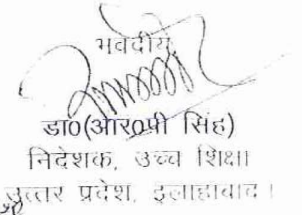 भवदीय,
डा0(आर0पी सिंह)
निदेशक, उच्च शिक्षा
उत्तर प्रदेश, इलाहाबाद।